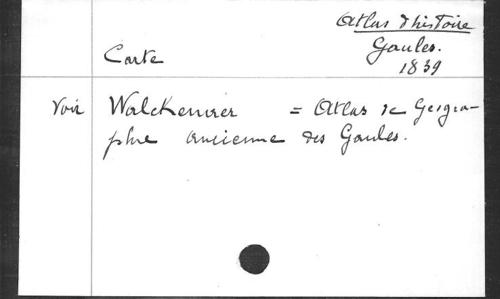 Atlas d'histoire
Gaules.
1839
Carte
Voir Walckenaer = Atlas de Géogra-
phie ancienne des Gaules.